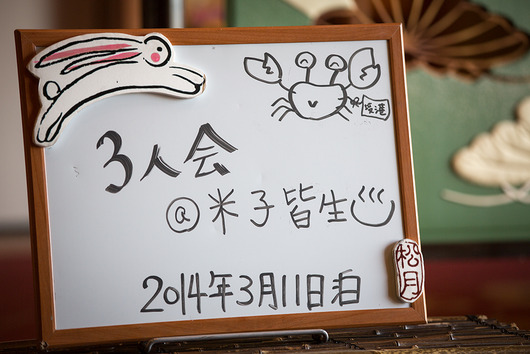 3人会
@米子皆生
2014年3月11日泊
松月